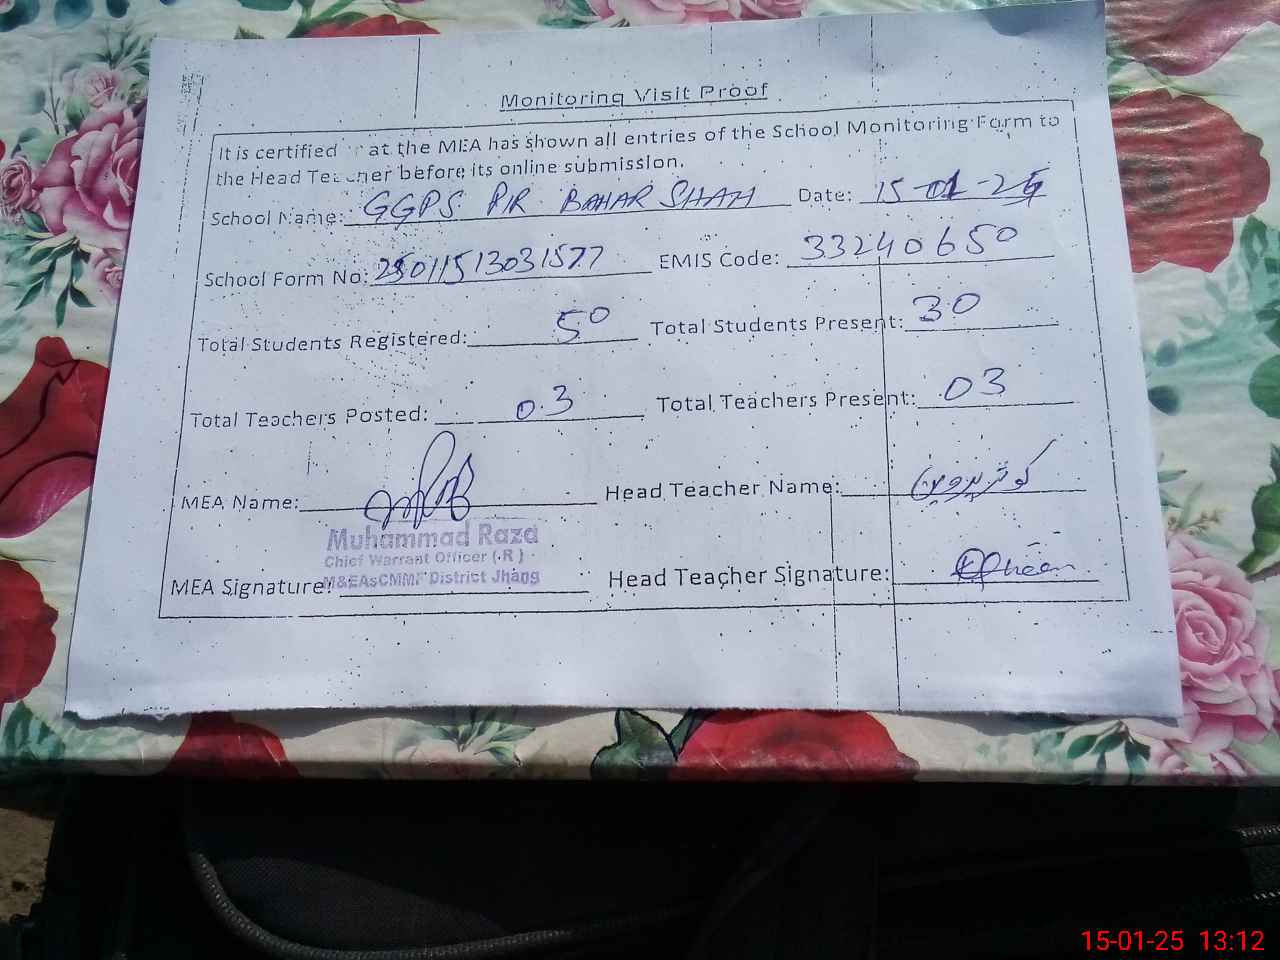 Monitoring Visit Proof
It is certified at the MEA has shown all entries of the School Monitoring Form to
the Head Teacher before its online submission.
School Name: GGPS PIR BAHAR SHAH Date: 15-01-25
School Form No: 25011513031577 EMIS Code: 33240650
Total Students Registered: 50 Total Students Present: 30
Total Teachers Posted: 03 Total Teachers Present: 03
MEA Name: Head Teacher Name: کوثر پروین
Muhammad Raza
Chief Warrant Officer (R)
M&EAsCMMF District Jhang
MEA Signature: Head Teacher Signature:
15-01-25 13:12